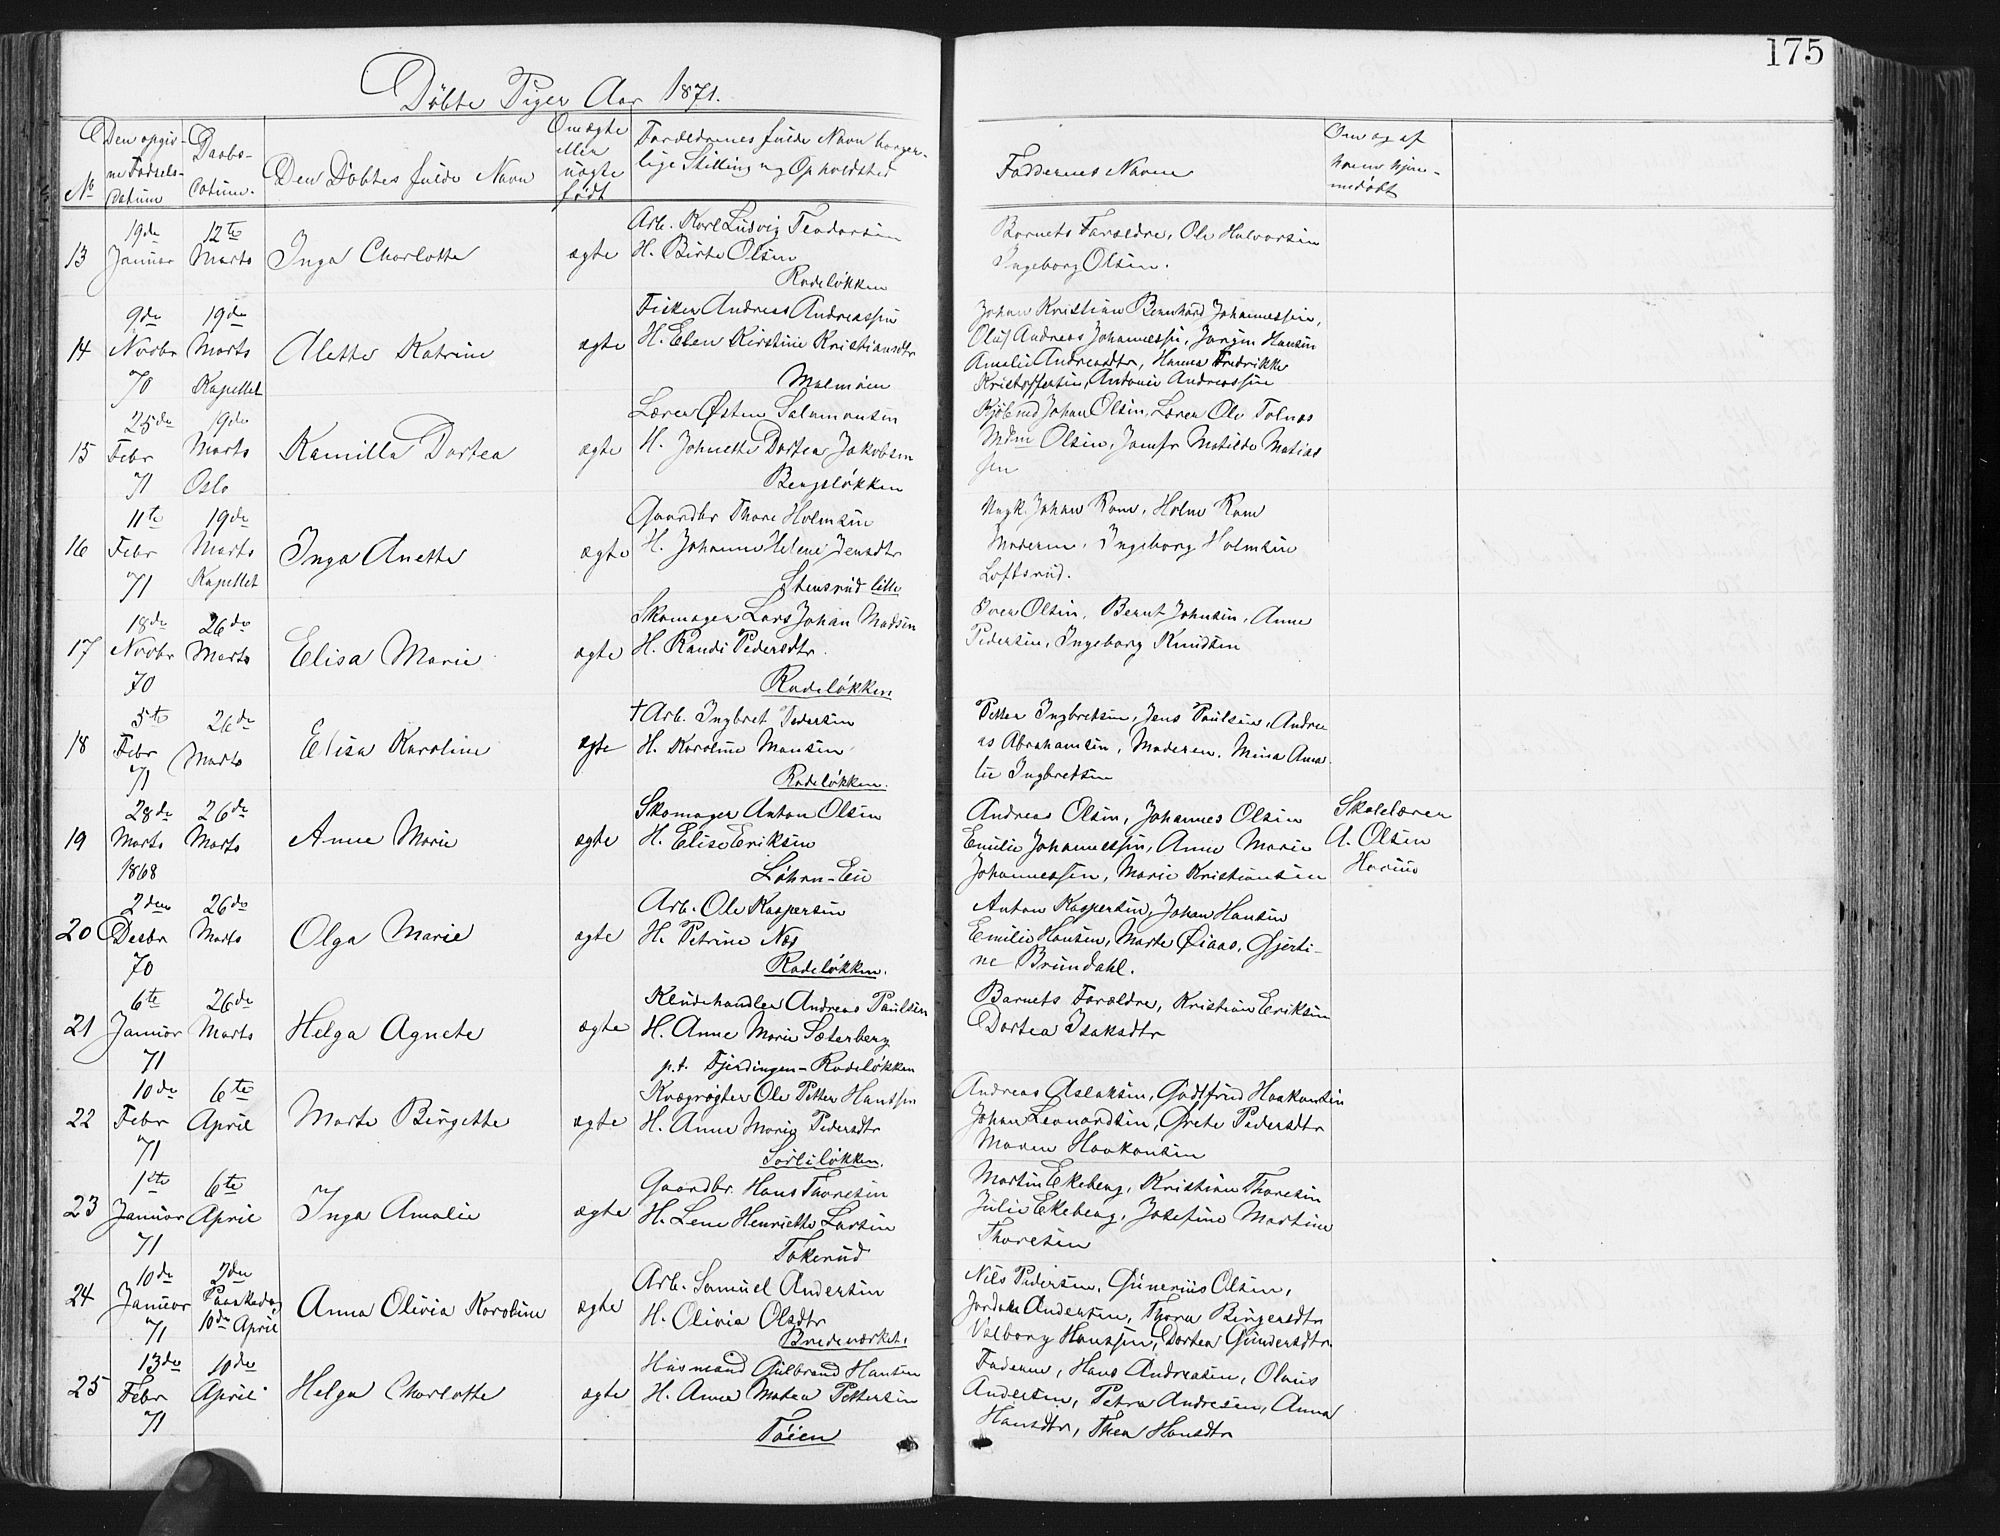 175
Døbte Piger Aar 1871.
No
Den opgiv-
ne Fødsels-
datum
Daabs-
datum.
Den Døbtes fulde Navn
Om ægte
eller
uægte
født
Forældrenes fulde Navn borger-
lige Stilling og Opholdsted
Faddernes Navne
Om og af
hvem hjem-
medøbt
13
19de
Januar
12te
Marts
Inga Charlotte
ægte
Arb. Karl Ludvig Teodorsen
H. Birte Olsen
Rodeløkken
Barnets Forældre, Ole Halvorsen
Ingeborg Olsen.
14
9de
Novbr
70
19de
Marts
Kapellet
Alette Katrine
ægte
Fisker Andreas Andreassen
H. Elen Kirstine Kristiansdtr
Malmøen
Johan Kristian Bernhard Johannessen,
Oluf Andreas Johannessen, Jørgen Hansen
Amalie Andreasdtr, Hanna Fredrikke
Kristoffersen, Antonie Andreassen
15
25de
Febr
71
19de
Marts
Oslo
Kamilla Dortea
ægte
Lærer Østen Salamonsen
H. Johnette Dortea Jakobsen
Bengsløkken
Johan Olsen, Lærer Ole Tolnæs
Mdm Olsen, Jomfr Matilde Matias
sen
16
11te
Febr
71
19de
Marts
Kapellet
Inga Anette
ægte
Gaardbr Thore Holmsen
H. Johanne Helene Jensdtr
Stensrud lille
Ungk. Johan Ram, Holm Ram
Moderen, Ingeborg Holmsen
Loftsrud.
17
18de
Novbr
70
26de
Marts
Elisa Marie
ægte
Skomager Lars Johan Madsen
H. Randi Pedersdtr.
Rodeløkken
Iver Olsen, Bernt Johnsen, Anne
Pedersen, Ingeborg Knudsen
18
5te
Febr
71
26de
Marts
Elisa Karoline
ægte
† Arb. Ingbret Pedersen
H. Karoline Monsen
Rodeløkken.
Petter Ingbretsen, Jens Paulsen, Andre
as Abrahamsen, Moderen, Mina Ama
lie Ingbretsen
19
28de
Marts
1868
26de
Marts
Anne Marie
ægte
Skomager Anton Olsen
H. Elise Eriksen
Løhren-Eie
Andreas Olsen, Johannes Olsen
Emilie Johannessen, Anne Marie
Johannessen, Marie Kristiansen
Skolelærer
A. Olsen
20
2den
Decbr
70
26de
Marts
Olga Marie
ægte
Arb. Ole Kaspersen
H. Petrine Næs
Rodeløkken.
Anton Kaspersen, Johan Hansen
Emilie Hansen, Marte Øiaas, Gjerti-
ne Brundahl.
21
6te
Januar
71
26de
Marts
Helga Agnete
ægte
Kludehandler Andreas Paulsen
H. Anne Marie Sæterberg
p.t. Fjerdingen-Rodeløkken
Barnets Forældre, Kristian Eriksen
Dortea Isaksdtr
22
10de
Febr
71
6te
April
Marte Birgette
ægte
Kvægrøgter Ole Petter Hanssen
H. Anne Marie Pedersdtr
Sorliløkken.
Andreas Aslaksen, Godtfred Haakonsen
Johan Leonardsen, Grete Pedersdtr
Maren Haakonsen
23
1ste
Januar
71
6te
April
Inga Amalie
ægte
Gaardbr. Hans Thoresen
H. Lene Henriette Larsen
Tokerud
Martin Ekeberg, Kristian Thoresen
Julie Ekeberg, Josefine Martine
Thoresen
24
10de
Januar
71
2den
Paaskedag
10de April
Anna Olivia Karoline
ægte
Arb. Samuel Andersen
H. Olivia Olsdtr
Bredeværket.
Nils Pedersen, Gunerius Olsen,
Andersen, Thora Birgersdtr
Valborg Hanssen, Dortea Gundersdtr
25
13de
Febr
71
10de
April
Helga Charlotte
ægte
Husmand Gulbrand Hansen
H. Anne Matea Pettersen
Tøien
Faderen, Hans Andreasen, Olaus
Andersen, Petra Andresen, Anna
Hansdtr, Thea Hansdtr